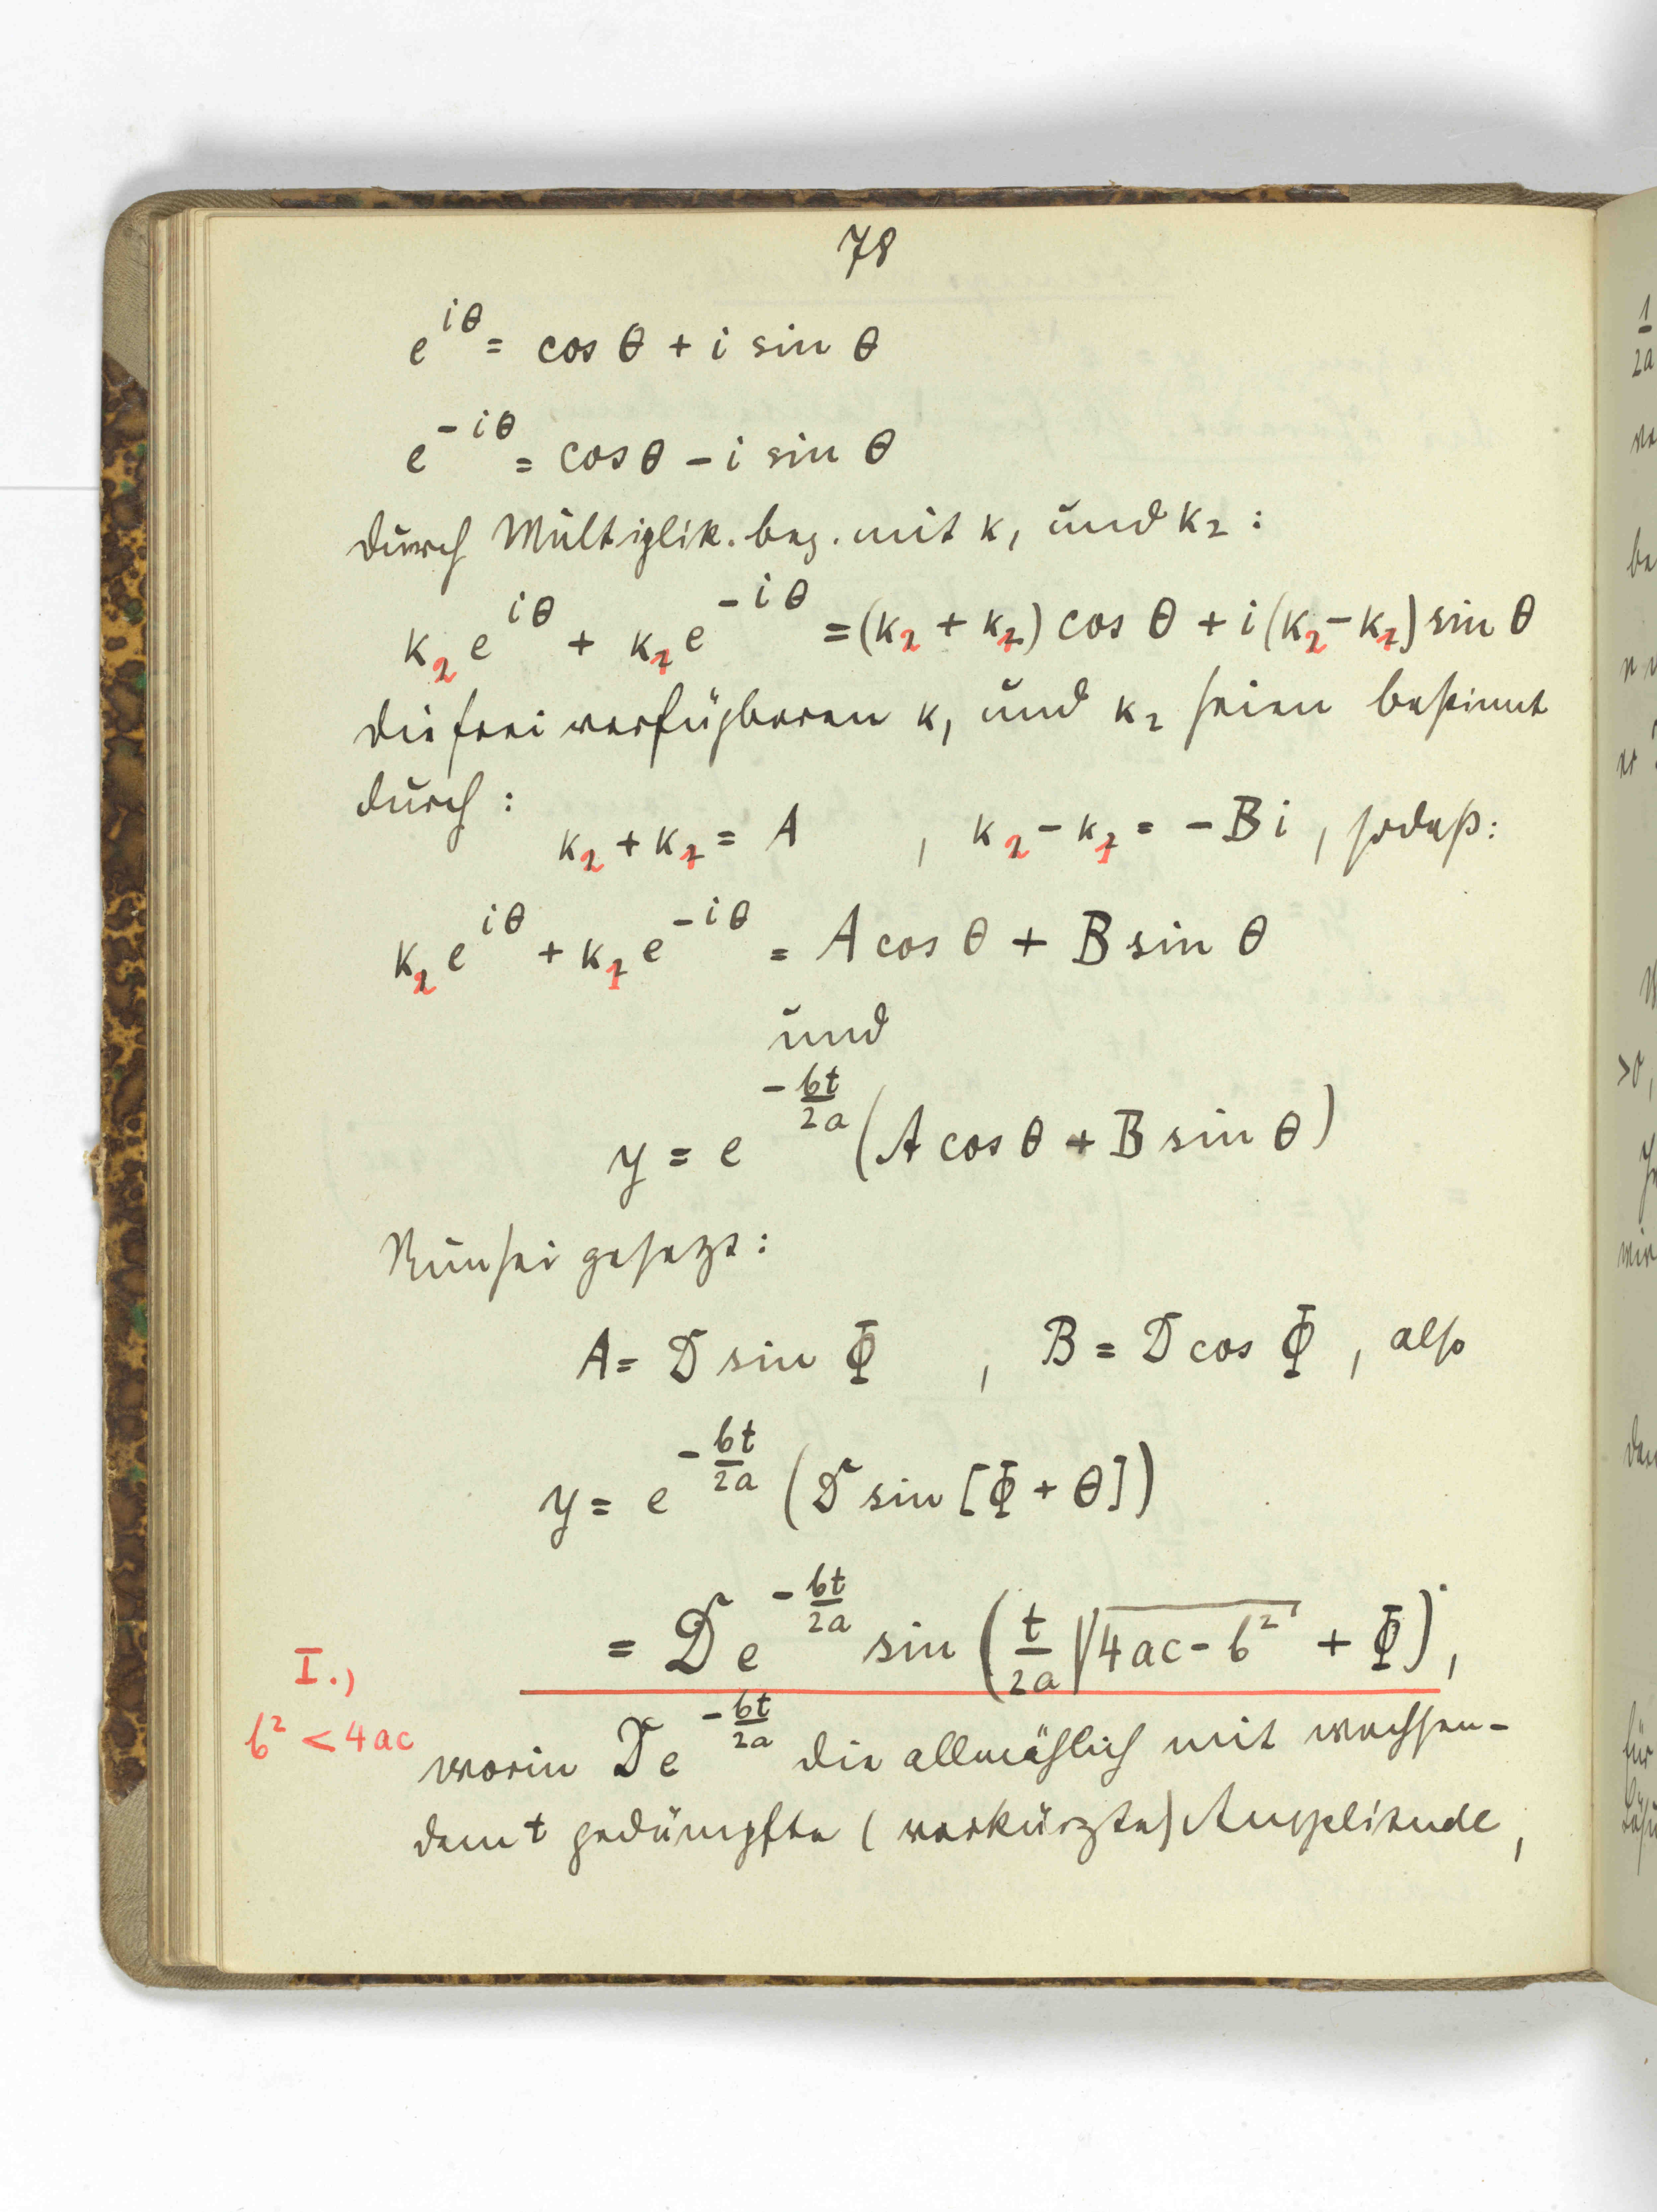 78
e^{iθ} = cos θ + i sin θ
e^{-iθ} = cos θ − i sin θ
durch Multiplik. bez. mit κ₁ und κ₂ :
κ₂ e^{iθ} + κ₁ e^{-iθ} = (κ₂ + κ₁) cos θ + i (κ₂ − κ₁) sin θ
die frei verfügbaren κ₁ und κ₂ seien bestimmt
durch :
κ₂ + κ₁ = A , κ₂ − κ₁ = − B i , sodaß:
κ₂ e^{iθ} + κ₁ e^{-iθ} = A cos θ + B sin θ
und
y = e^{-bt/2a} (A cos θ + B sin θ)
Nun sei gesetzt :
A = D sin Φ , B = D cos Φ , also
y = e^{-bt/2a} (D sin [Φ + θ])
= D e^{-bt/2a} sin (t/2a √(4ac − b²) + Φ) ,
I.)
b² < 4ac
worin D e^{-bt/2a} die allmählich mit wachsen-
dem t gedämpfte (verkürzte) Amplitude ,